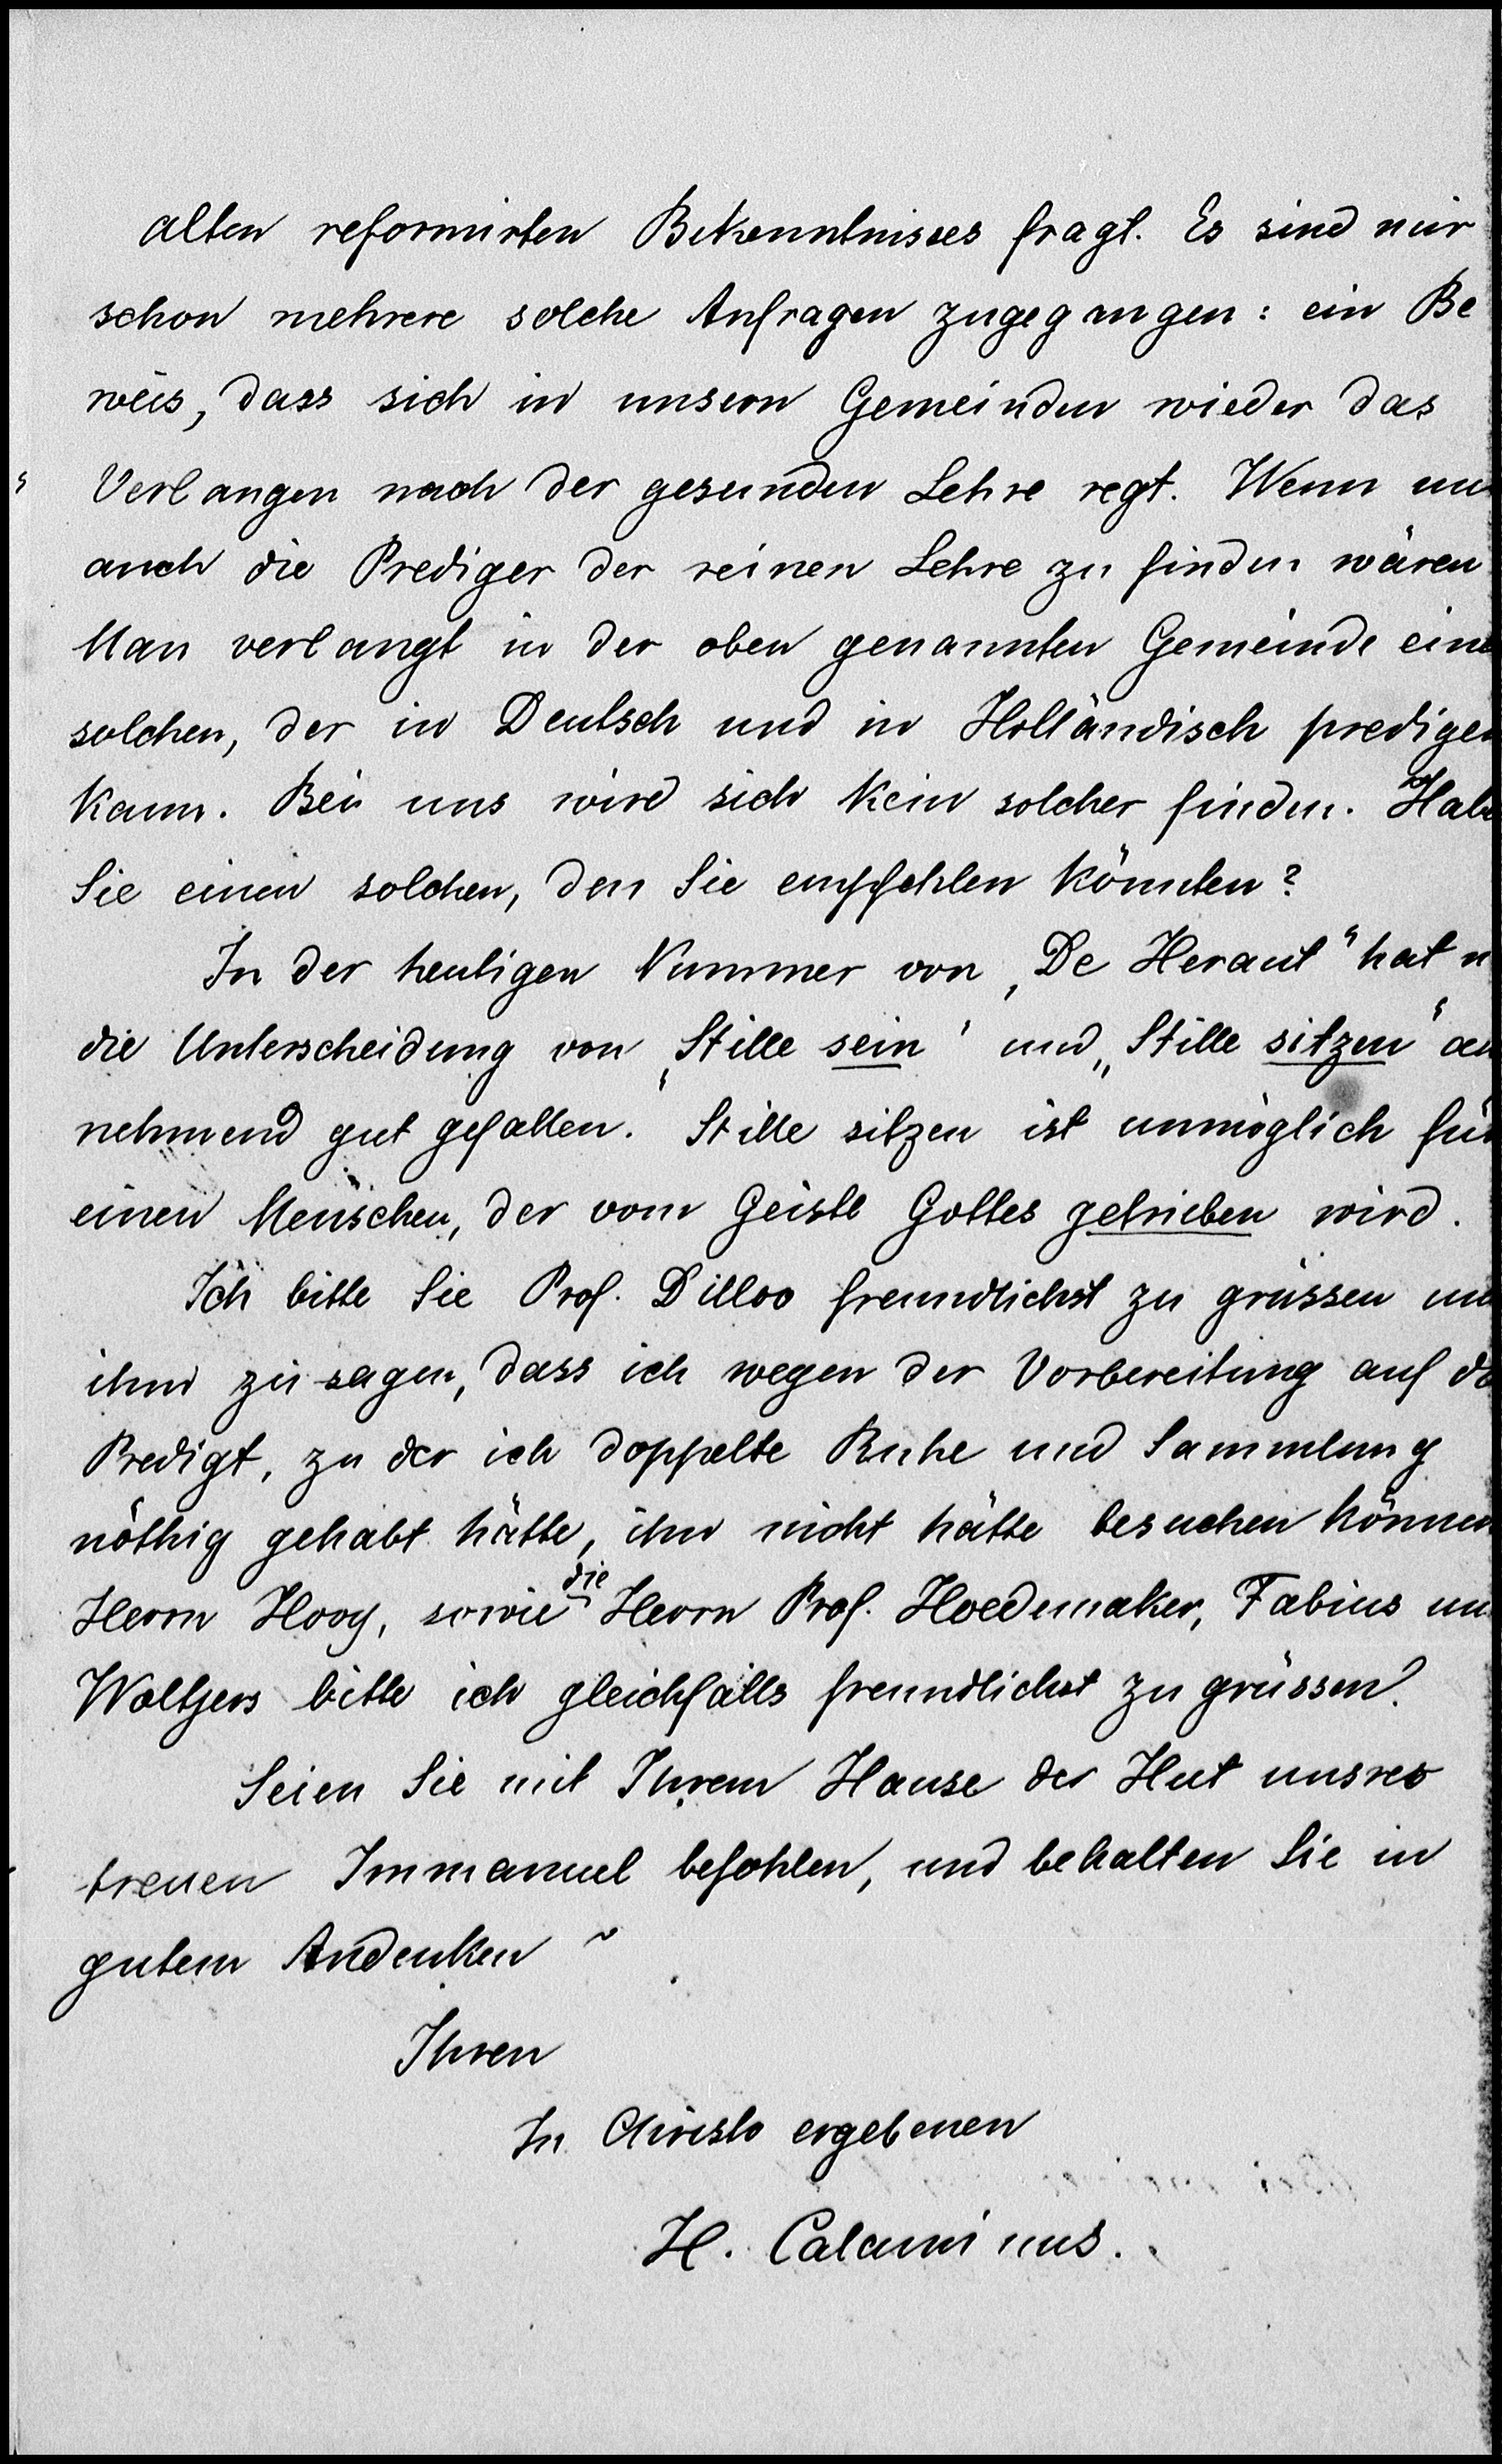 alten reformirten Bekenntnisses fragt. Es sind mir
schon mehrere solche Anfragen zugegangen: ein Be
weis, dass sich in unsern Gemeinden wieder das
Verlangen nach der gesunden Lehre regt. Wenn nu
auch die Prediger der reinen Lehre zu finden wären
Man verlangt in der oben genannten Gemeinde eine
solchen, der in Deutsch und in Holländisch predigen
kann. Bei uns wird sich kein solcher finden. Habe
Sie einen solchen, den Sie empfehlen könnten?
In der heutigen Nummer von „De Heraut" hat m
die Unterscheidung von „Stille sein" und „Stille sitzen" au
nehmend gut gefallen. Stille sitzen ist unmöglich für
einen Menschen, der vom Geiste Gottes getrieben wird.
Ich bitte Sie Prof. Dilloo freundlichst zu grüssen und
ihm zu sagen, dass ich wegen der Vorbereitung auf d
Predigt, zu der ich doppelte Ruhe und Sammlung
nöthig gehabt hätte, ihn nicht hätte besuchen können
Herrn Hovy, sowie die Herrn Prof. Hoedemaker, Fabius un
Woltjers bitte ich gleichfalls freundlichst zu grüssen.
Seien Sie mit Ihrem Hause der Hut unsres
treuen Immanuel befohlen, und behalten Sie in
gutem Andenken
Ihren
In Christo ergebenen
H. Calaminus.